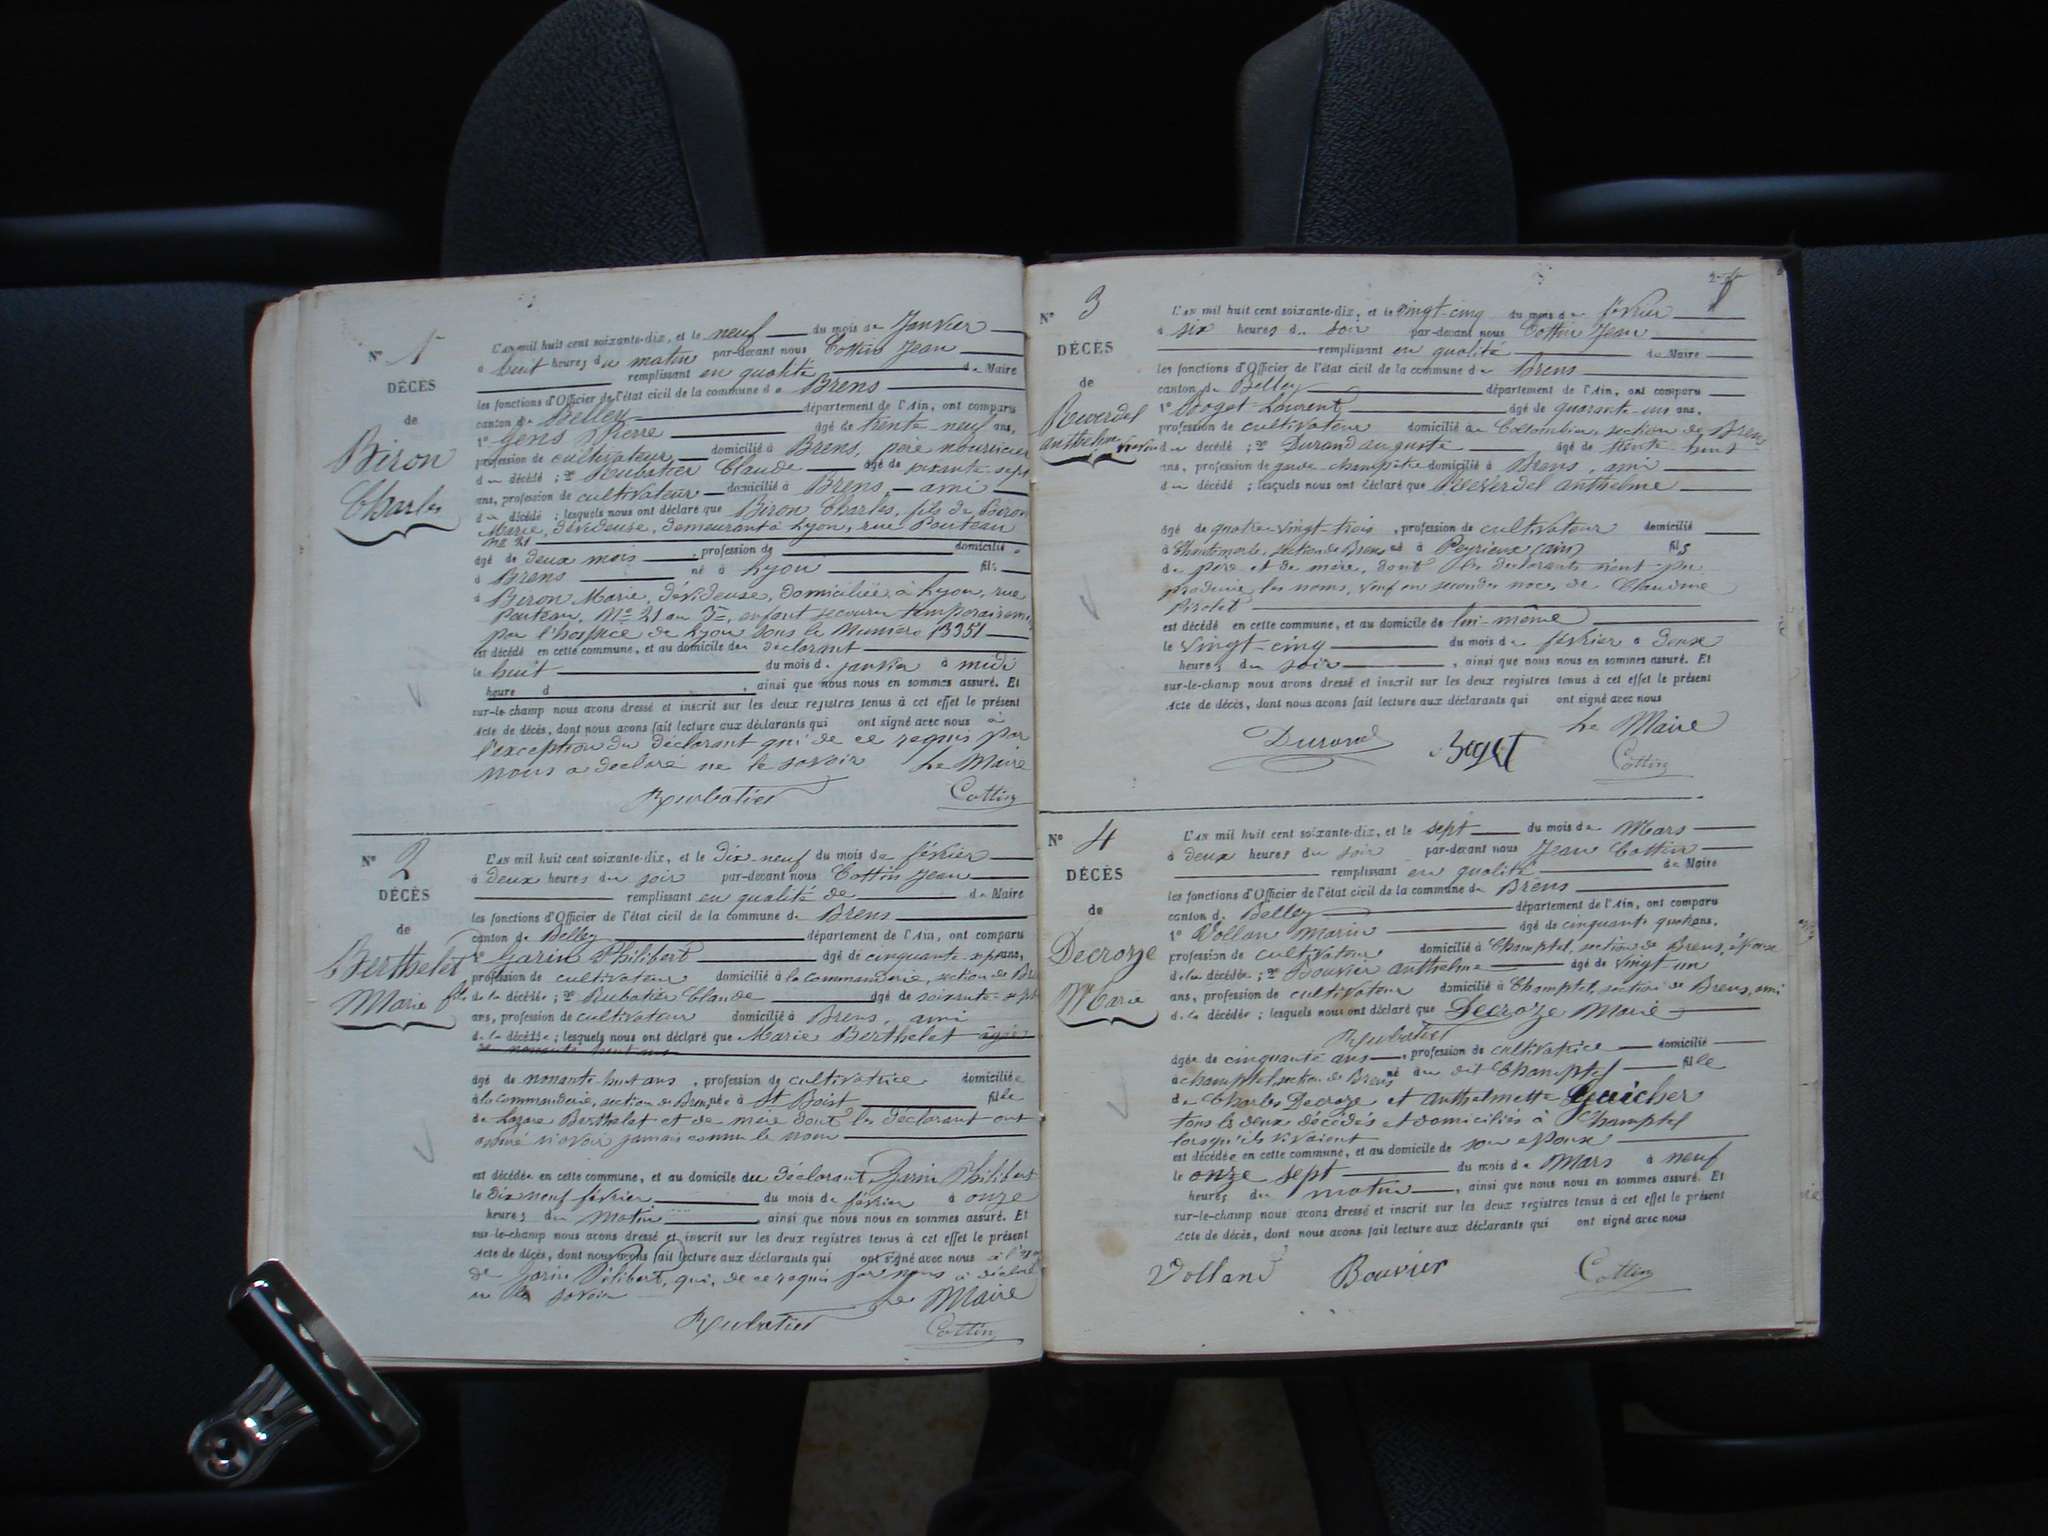 N° 1
DÉCÈS
de
Biron
Charles
L'AN mil huit cent soixante-dix, et le neuf du mois de Janvier
à huit heures du matin par-devant nous Cottin Jean
remplissant en qualité de Maire
les fonctions d'Officier de l'état civil de la commune de Brens
canton de Belley département de l'Ain, ont comparu
1° Gens Pierre âgé de trente-neuf ans,
profession de cultivateur domicilié à Brens, père nourricier
du décédé ; 2° Rubatier Claude âgé de soixante-sept
ans, profession de cultivateur domicilié à Brens, ami
du décédé ; lesquels nous ont déclaré que Biron Charles, fils de Biron
Marie, dévideuse, demeurant à Lyon, rue Pouteau
No 21
âgé de deux mois, profession de domicilié
à Brens né à Lyon fils
à Biron Marie, dévideuse, domiciliée à Lyon, rue
Pouteau, No 21 au 3e, enfant secouru temporairemt
par l'hospice de Lyon sous le Numéro 13351
est décédé en cette commune, et au domicile du déclarant
le huit du mois de janvier à midi
heure d , ainsi que nous nous en sommes assuré. Et
sur-le-champ nous avons dressé et inscrit sur les deux registres tenus à cet effet le présent
Acte de décès, dont nous avons fait lecture aux déclarants qui ont signé avec nous à
l'exception du déclarant qui de ce requis par
nous a déclaré ne le savoir Le Maire
Rubatier Cottin
N° 2
DÉCÈS
de
Berthelet
Marie
L'AN mil huit cent soixante-dix, et le dix-neuf du mois de février
à deux heures du soir par-devant nous Cottin Jean
remplissant en qualité de de Maire
les fonctions d'Officier de l'état civil de la commune de Brens
canton de Belley département de l'Ain, ont comparu
1° Garin Philibert âgé de cinquante-sept ans,
profession de cultivateur domicilié à la commanderie, section de Bre
de la décédée ; 2° Rubatier Claude âgé de soixante-sept
ans, profession de cultivateur domicilié à Brens, ami
de la décédée ; lesquels nous ont déclaré que Marie Berthelet âgée
de nonante huit ans
âgé de nonante-huit ans, profession de cultivatrice domiciliée
à la commanderie, section de Brens, née à St Boist fille
de Lazare Berthelet et de mère dont les déclarant ont
assuré n'avoir jamais connu le nom
est décédée en cette commune, et au domicile du déclarant Garin Philibert
le dix neuf février du mois de février à onze
heures du matin ainsi que nous nous en sommes assuré. Et
sur-le-champ nous avons dressé et inscrit sur les deux registres tenus à cet effet le présent
Acte de décès, dont nous avons fait lecture aux déclarants qui ont signé avec nous
de Garin Pilibert, qui, de ce requis par nous a déclaré
ne le savoir Le Maire
Rubatier Cottin
N° 3
DÉCÈS
de
Reverdel
anthelme
L'AN mil huit cent soixante-dix, et le vingt-cinq du mois de février
à six heures du soir par-devant nous Cottin Jean
remplissant en qualité de Maire
les fonctions d'Officier de l'état civil de la commune de Brens
canton de Belley département de l'Ain, ont comparu
1° Boget Laurent âgé de quarante-un ans,
profession de cultivateur domicilié à Colombier, section de Bren
du décédé ; 2° Durand auguste âgé de trente-huit
ans, profession de garde-champêtre domicilié à Brens, ami
du décédé ; lesquels nous ont déclaré que Reverdel anthelme
âgé de quatre vingt-trois, profession de cultivateur domicilié
à Chantemerle, section de Brens né à Peyrieux (ain) fils
de père et de mère, dont les déclarants n'ont pu
produire les noms, veuf en secondes noces de Claudine
Pirolet
est décédé en cette commune, et au domicile de lui-même
le vingt-cinq du mois de février à deux
heures du soir, ainsi que nous nous en sommes assuré. Et
sur-le-champ nous avons dressé et inscrit sur les deux registres tenus à cet effet le présent
Acte de décès, dont nous avons fait lecture aux déclarants qui ont signé avec nous
Le Maire
Durand Boget Cottin
N° 4
DÉCÈS
de
Decroze
Marie
L'AN mil huit cent soixante-dix, et le sept du mois de Mars
à deux heures du soir par-devant nous Jean Cottin
remplissant en qualité de Maire
les fonctions d'Officier de l'état civil de la commune de Brens
canton de Belley département de l'Ain, ont comparu
1° Vollan Marin âgé de cinquante quat ans,
profession de cultivateur domicilié à Champtel, section de Brens, époux
de la décédée ; 2° Bouvier anthelme âgé de vingt un
ans, profession de cultivateur domicilié à Champtel, section de Brens, ami
de la décédée ; lesquels nous ont déclaré que Decroze Marie
Rubatier
âgée de cinquante ans, profession de cultivatrice domicilié
à champtel, section de Brens né au dit Champtel fille
de Charles Decroze et anthelmette Guicher
tous les deux décédés et domiciliés à Champtel
lorsqu'ils vivaient
est décédée en cette commune, et au domicile de son epoux
le onze sept du mois de Mars à neuf
heures du matin, ainsi que nous nous en sommes assuré. Et
sur-le-champ nous avons dressé et inscrit sur les deux registres tenus à cet effet le présent
Acte de décès, dont nous avons fait lecture aux déclarants qui ont signé avec nous
Volland Bouvier Cottin